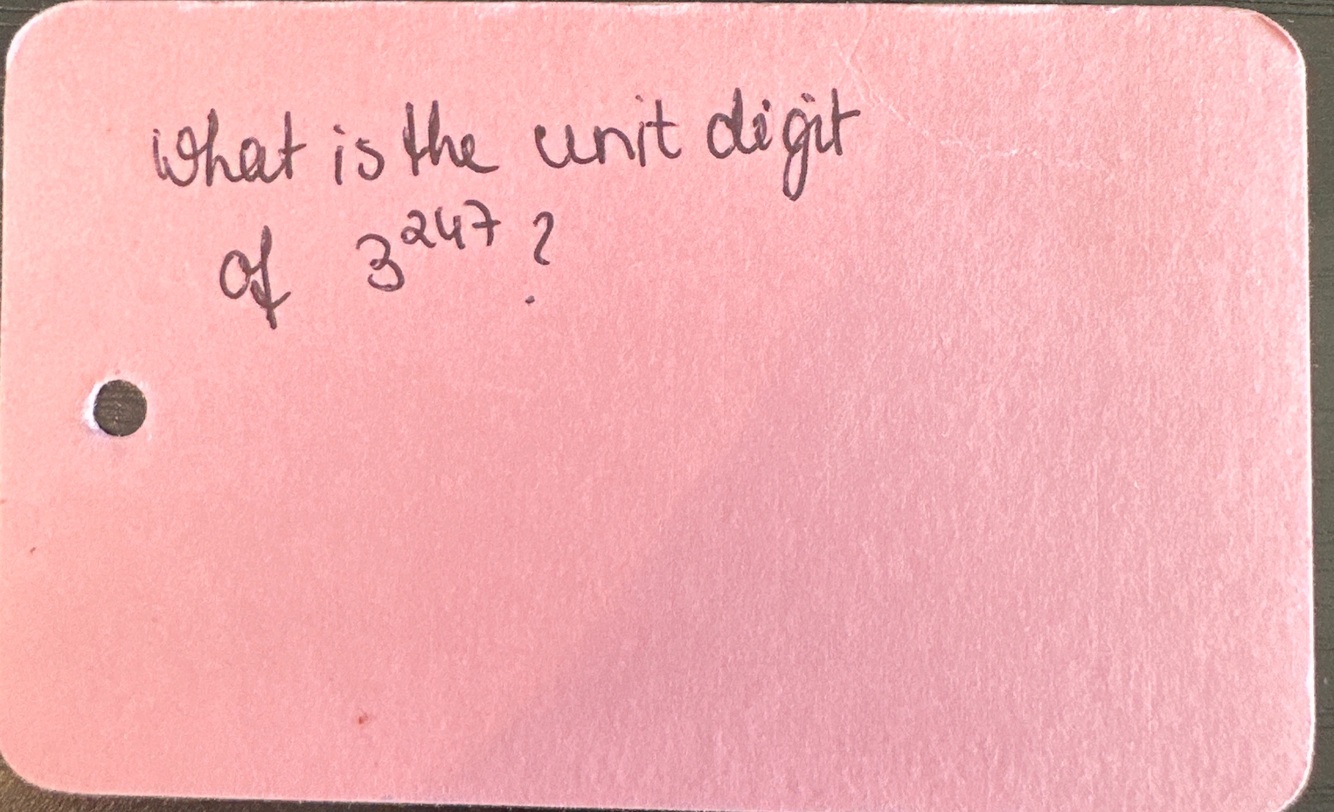 What is the unit digit
of 3²⁴⁷ ?